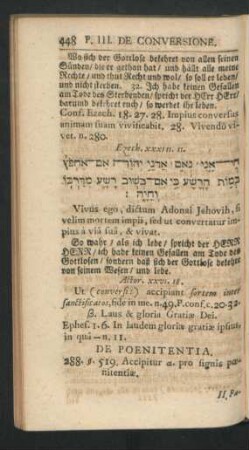 448 P. III. DE CONVERSIONE.
Wo sich der Gottlose bekehret von allen seinen
Sünden/ die er gethan hat/ und hält alle meine
Rechte/ und thut Recht und wol/ so soll er leben/
und nicht sterben. 32. Ich habe keinen Gefallen
am Tode des Sterbenden/ spricht der HErr HErr/
darum bekehret euch/ so werdet ihr leben.
Conf. Ezech. 18. 27. 28. Impius conversus
animam suam vivificabit. 28. Vivendo vi-
vet. n. 280.
Ezech. XXXIII. 11.
חי־אני נאם אדני יהוה אם־אחפץ
במות הרשע כי אם־בשוב רשע מדרכו
וחיה:
Vivus ego, dictum Adonai Jehovih, si
velim mortem impii, sed ut convertatur im-
pius à viâ suâ, & vivat.
So wahr/ als ich lebe/ spricht der HERR
HERR/ ich habe keinen Gefallen am Tode des
Gottlosen/ sondern daß sich der Gottlose bekehre
von seinem Wesen/ und lebe.
Actor. XXVI. 18.
Ut (conversi) accipiant sortem inter
sanctificatos, fide in me. n. 49. P. conf. c. 20. 32.
β. Laus & gloria Gratiæ Dei.
Ephes. 1. 6. In laudem gloriæ gratiæ ipsius
in quâ — n. 11.
DE POENITENTIA.
288. f. 519. Accipitur α. pro signis pœ-
nitentiæ.